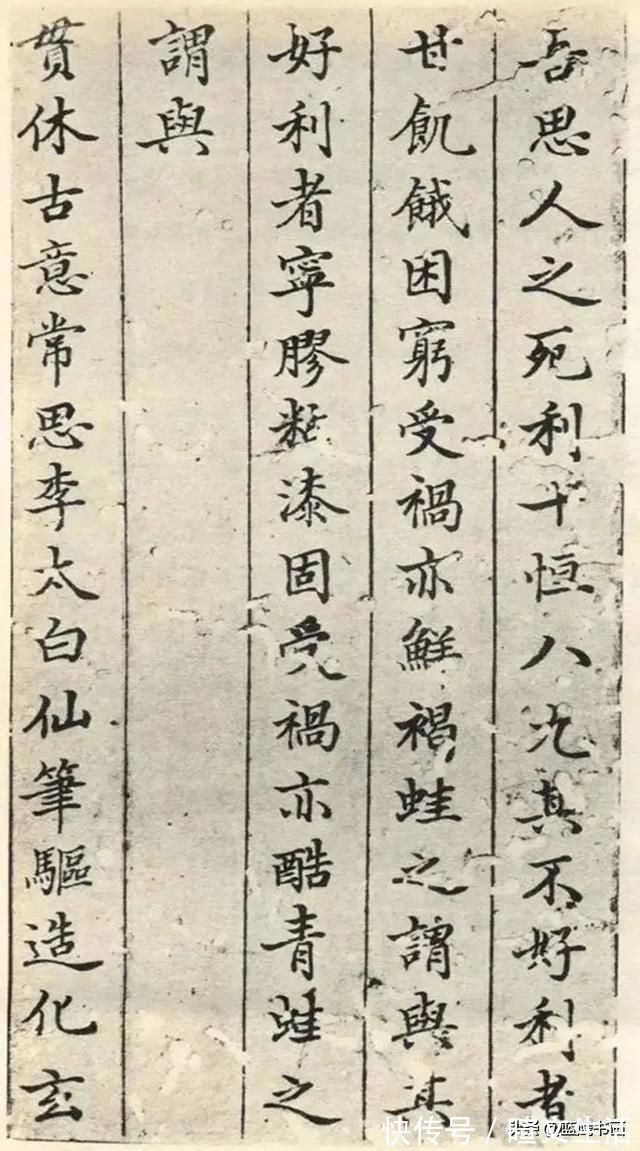 吾思人之死利十恒八九其不好利者
甘飢餓困窮受禍亦鮮褐蛙之謂與其
好利者寧膠粘漆固受禍亦酷青蛙之
謂與
貫休古意常思李太白仙筆驅造化玄
快传号 /